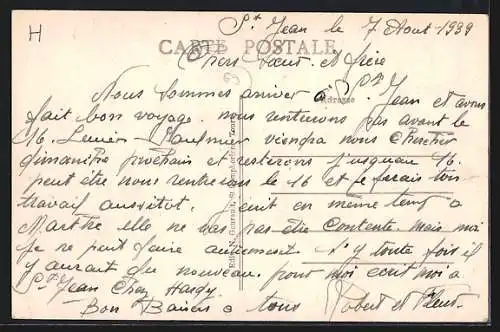 H
St Jean le 7 Aout 1939
CARTE POSTALE
Chers Sœur et frère
Adresse
Nous sommes arriver a St Jean et avons
fait bon voyage. nous rentrerons pas avant le
16. viendra nous chercher
dimanche prochain et resterons jusquau 16.
peut être nous rentrerons le 16 et je ferais ton
travail aussitot. ecrit en même temp a
Marthe elle ne vas pas être contente. mais moi
je ne peut faire autrement. s'y toute fois il
y aurait du nouveau. pour moi ecrit moi a
St Jean Chez Hardy
Bon Baisers a tous Robert et